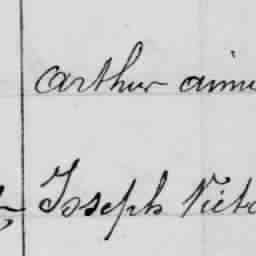 Arthur aimé
Joseph Victo